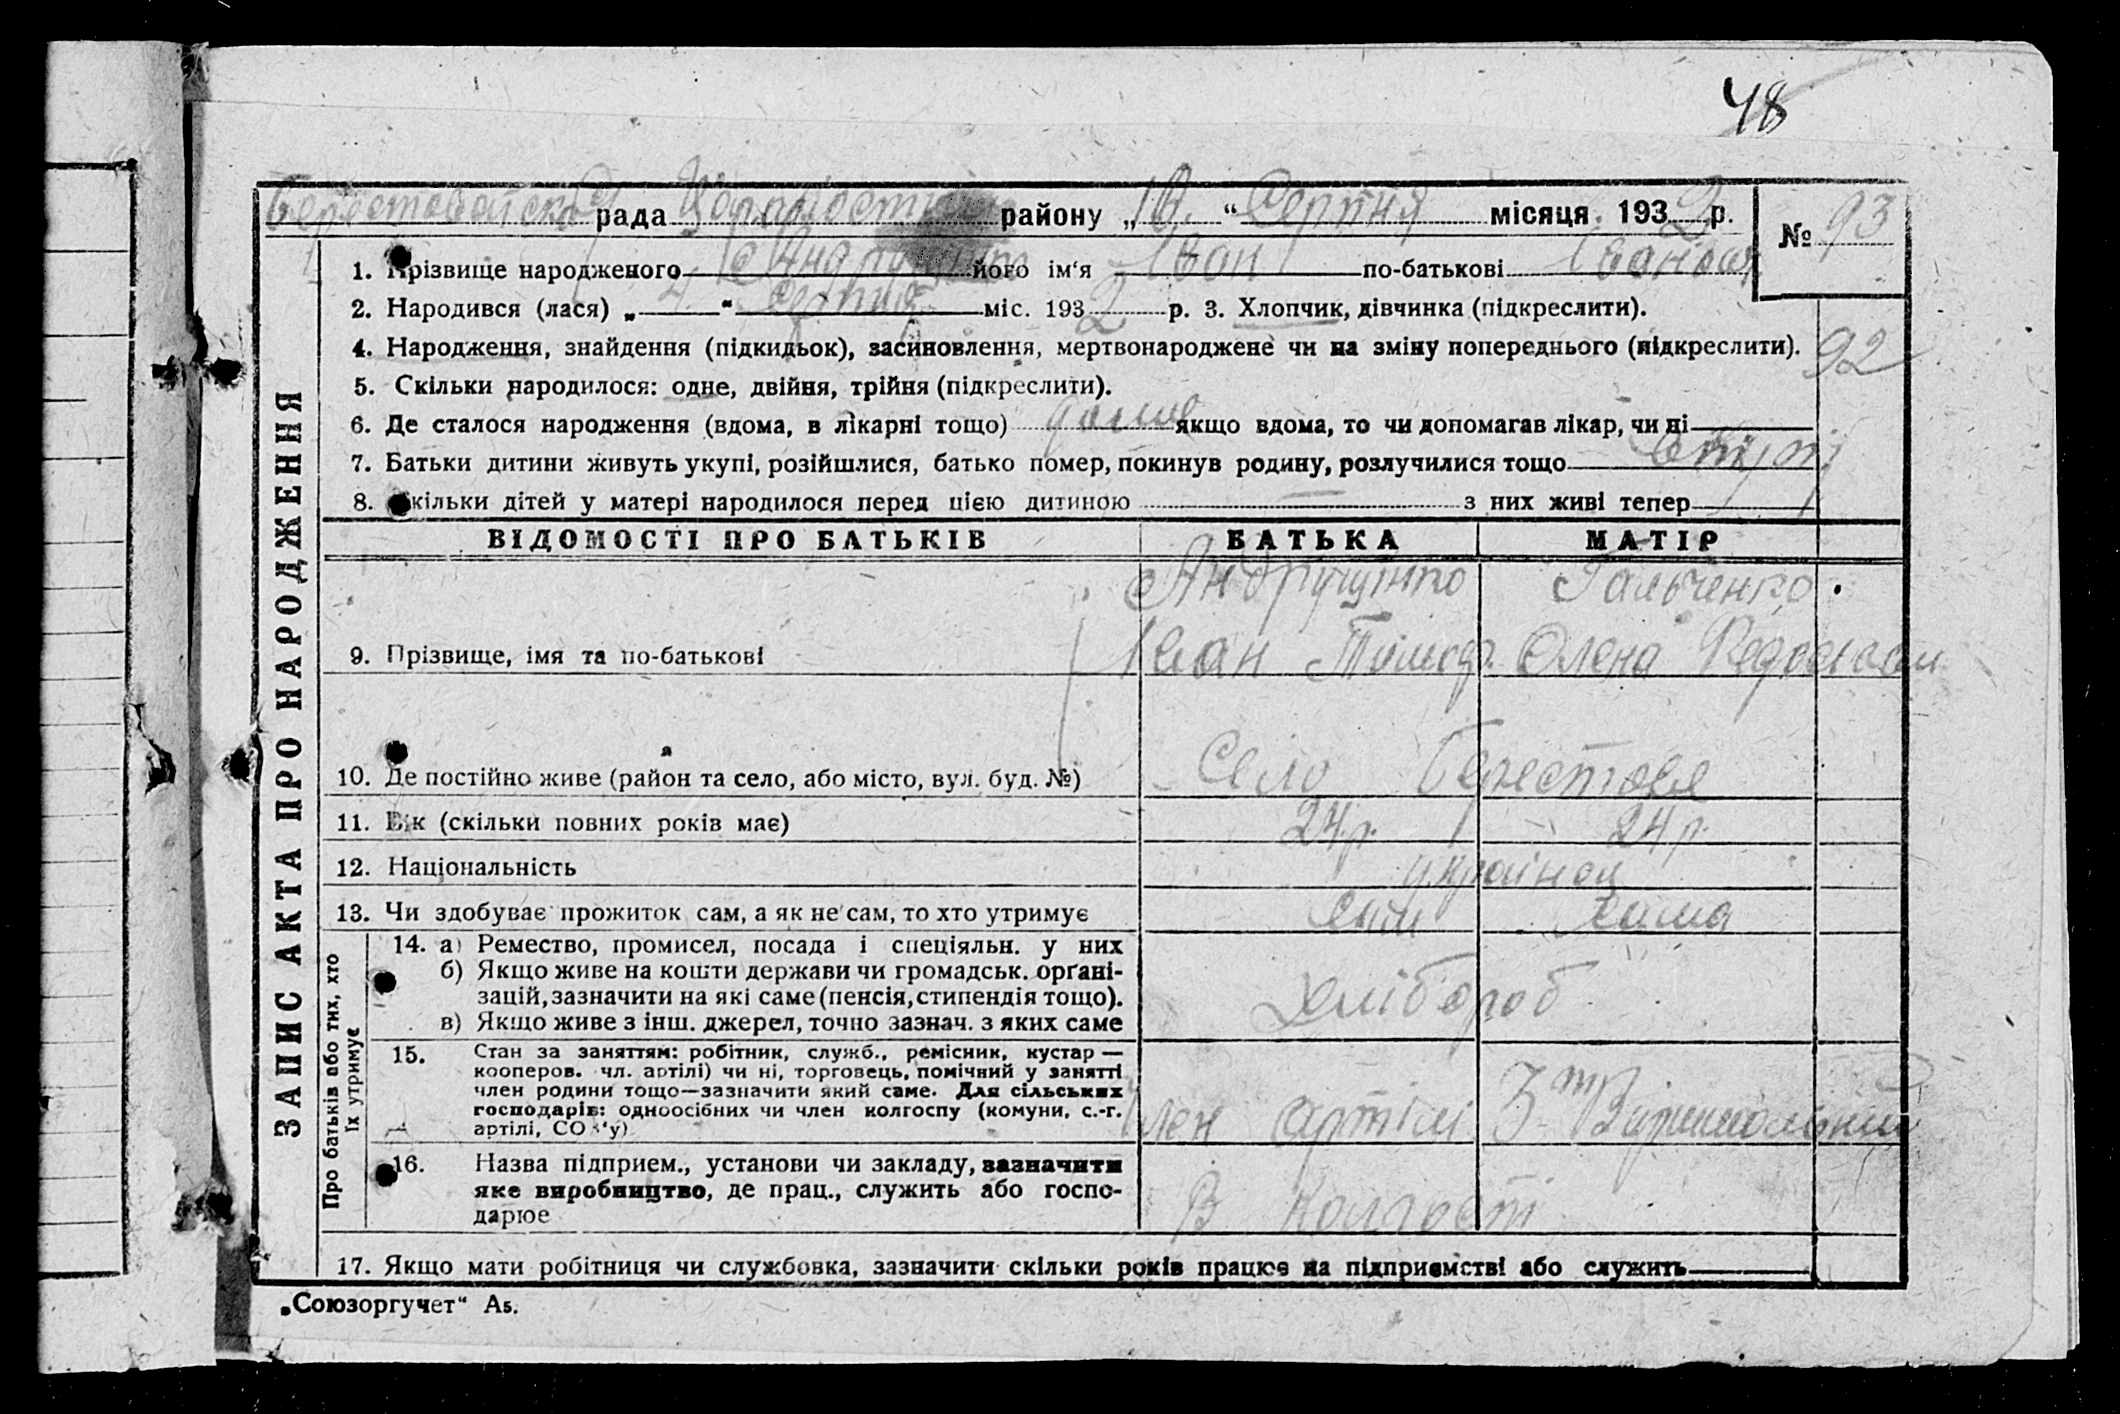 48
рада району „10.“ Серпня місяця 1932 р.
№ 93
1. Прізвище народженого Андрущенко його ім‘я Іван по-батькові Іванов.
2. Народився (лася) „4“ Серпня міс. 1932 р. 3. Хлопчик, дівчинка (підкреслити).
4. Народження, знайдення (підкидьок), засиновлення, мертвонароджене чи на зміну попереднього (підкреслити).
92
5. Скільки народилося: одне, двійня, трійня (підкреслити).
6. Де сталося народження (вдома, в лікарні тощо) дома якщо вдома, то чи допомагав лікар, чи ні
7. Батьки дитини живуть укупі, розійшлися, батько помер, покинув родину, розлучилися тощо
8. Скільки дітей у матері народилося перед цією дитиною — з них живі тепер
ЗАПИС АКТА ПРО НАРОДЖЕННЯ
ВІДОМОСТІ ПРО БАТЬКІВ БАТЬКА МАТІР
Андрущінко Гальченко
9. Прізвище, імя та по-батькові Іван Тимоф. Олена
10. Де постійно живе (район та село, або місто, вул. буд. №) Село Берестове
11. Вік (скільки повних років має) 24 р. 24 р.
12. Національність українці
13. Чи здобуває прожиток сам, а як не сам, то хто утримує сам сама
Про батьків або тих, хто їх утримує
14. а) Ремество, промисел, посада і спеціяльн. у них
б) Якщо живе на кошти держави чи громадськ. орґані-
зацій, зазначити на які саме (пенсія, стипендія тощо).
в) Якщо живе з інш. джерел, точно зазнач. з яких саме
Хлібороб
15. Стан за заняттям: робітник, служб., ремісник, кустар —
кооперов. чл. артілі) чи ні, торговець, помічний у занятті
член родини тощо—зазначити який саме. Для сільських
господарів: одноосібних чи член колгоспу (комуни, с.-г.
артілі, СО ‘у)
Член артілі
16. Назва підприєм., установи чи закладу, зазначити
яке виробництво, де прац., служить або госпо-
дарює
В колгоспі
17. Якщо мати робітниця чи службовка, зазначити скільки років працює на підприємстві або служить
„Союзоргучет“ А5.